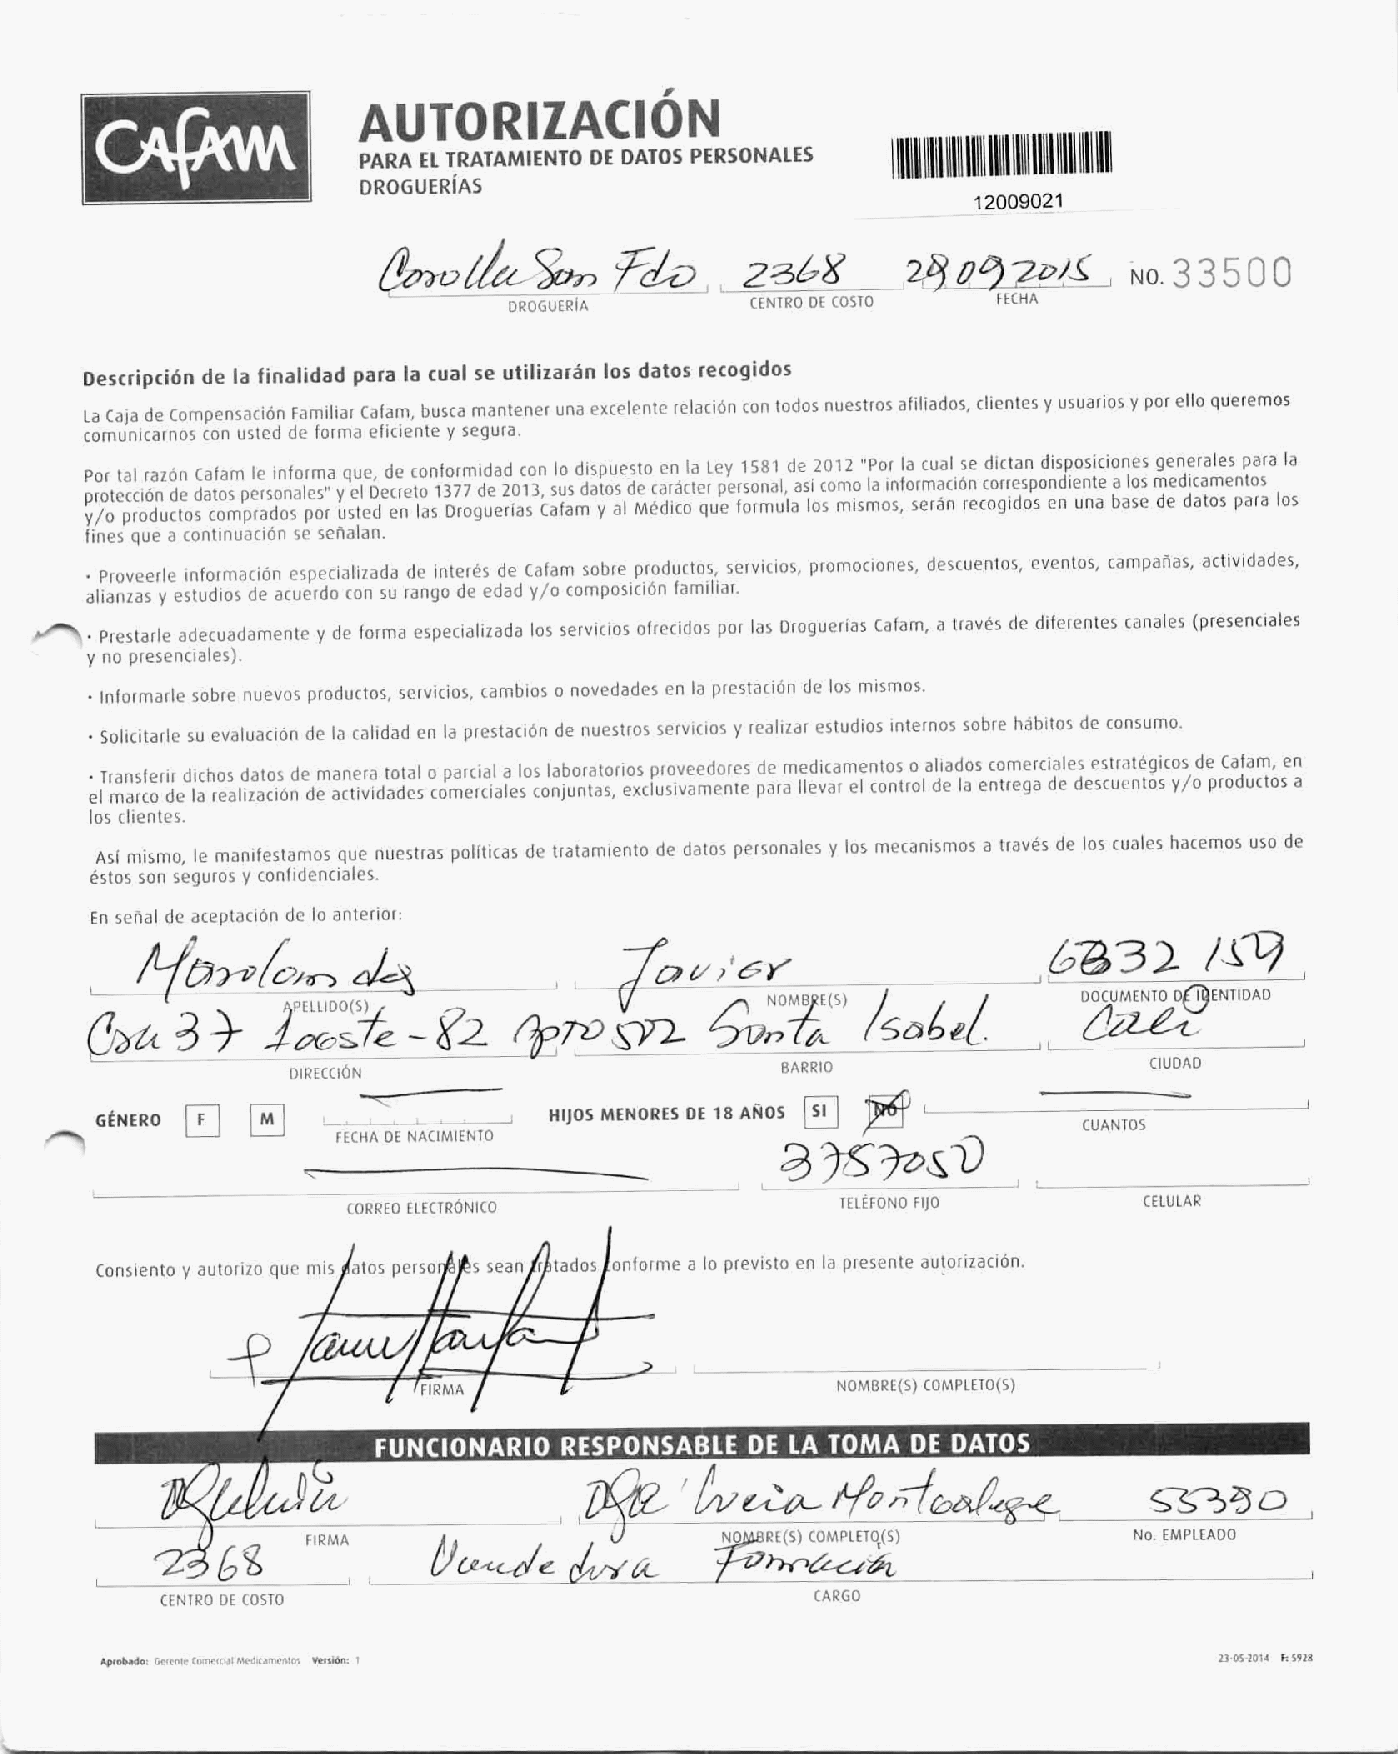 CAFAM
AUTORIZACIÓN
PARA EL TRATAMIENTO DE DATOS PERSONALES
DROGUERÍAS
12009021
San Fdo 2368 28 09 2015 NO. 33500
DROGUERÍA CENTRO DE COSTO FECHA
Descripción de la finalidad para la cual se utilizarán los datos recogidos
La Caja de Compensación Familiar Cafam, busca mantener una excelente relación con todos nuestros afiliados, clientes y usuarios y por ello queremos
comunicarnos con usted de forma eficiente y segura.
Por tal razón Cafam le informa que, de conformidad con lo dispuesto en la Ley 1581 de 2012 "Por la cual se dictan disposiciones generales para la
protección de datos personales" y el Decreto 1377 de 2013, sus datos de carácter personal, así como la información correspondiente a los medicamentos
y/o productos comprados por usted en las Droguerías Cafam y al Médico que formula los mismos, serán recogidos en una base de datos para los
fines que a continuación se señalan.
· Proveerle información especializada de interés de Cafam sobre productos, servicios, promociones, descuentos, eventos, campañas, actividades,
alianzas y estudios de acuerdo con su rango de edad y/o composición familiar.
· Prestarle adecuadamente y de forma especializada los servicios ofrecidos por las Droguerías Cafam, a través de diferentes canales (presenciales
y no presenciales).
· Informarle sobre nuevos productos, servicios, cambios o novedades en la prestación de los mismos.
· Solicitarle su evaluación de la calidad en la prestación de nuestros servicios y realizar estudios internos sobre hábitos de consumo.
· Transferir dichos datos de manera total o parcial a los laboratorios proveedores de medicamentos o aliados comerciales estratégicos de Cafam, en
el marco de la realización de actividades comerciales conjuntas, exclusivamente para llevar el control de la entrega de descuentos y/o productos a
los clientes.
Así mismo, le manifestamos que nuestras políticas de tratamiento de datos personales y los mecanismos a través de los cuales hacemos uso de
éstos son seguros y confidenciales.
En señal de aceptación de lo anterior:
Javier
APELLIDO(S) NOMBRE(S) DOCUMENTO DE IDENTIDAD
37 - 82 Apto 502 Santa Isabel. Cali
DIRECCIÓN BARRIO CIUDAD
GÉNERO F M FECHA DE NACIMIENTO HIJOS MENORES DE 18 AÑOS SI NO CUANTOS
3757050
CORREO ELECTRÓNICO TELÉFONO FIJO CELULAR
Consiento y autorizo que mis datos personales sean tratados conforme a lo previsto en la presente autorización.
FIRMA NOMBRE(S) COMPLETO(S)
FUNCIONARIO RESPONSABLE DE LA TOMA DE DATOS
55380
FIRMA NOMBRE(S) COMPLETO(S) No. EMPLEADO
2368 Vendedora
CENTRO DE COSTO CARGO
Aprobado: Gerente Comercial Medicamentos Versión: 1 23-05-2014 F: 5928